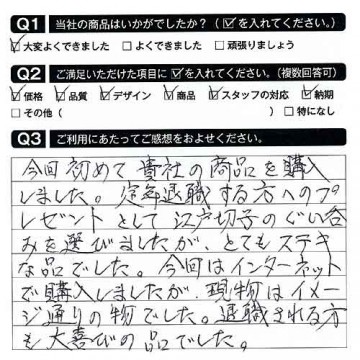 Q1 当社の商品はいかがでしたか?(☑を入れてください。)
☑大変よくできました □よくできました □頑張りましょう
Q2 ご満足いただけた項目に☑を入れてください。(複数回答可)
☑価格 ☑品質 ☑デザイン ☑商品 ☑スタッフの対応 ☑納期
□その他( ) □特になし
Q3 ご利用にあたってご感想をおよせください。
今回初めて貴社の商品を購入
しました。定年退職する方へのプ
レゼントとして江戸切子のぐい呑
みを選びましたが、とてもステキ
な品でした。今回はインターネット
で購入しましたが、現物はイメー
ジ通りの物でした。退職される方
も大喜びの品でした。